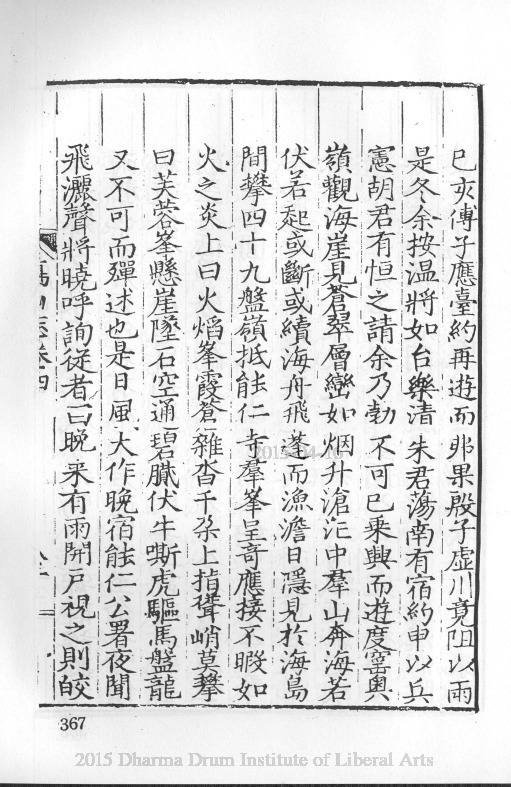 已亥傅子應臺約再遊而弗果殷子虛川竟阻以雨
是冬余按温將如台樂清朱君蕩南有宿約申以兵
憲胡君有恒之請余乃勃不可已乘興而遊度窰奥
嶺觀海崖見蒼翠層巒如烟升滄江中羣山奔海若
伏若起或斷或續海舟飛蓬而漁澹日隱見於海島
間攀四十九盤嶺抵能仁寺羣峯呈奇應接不暇如
火之炎上曰火焰峯霞蒼雜沓千朶上指聳峭莫攀
曰芙蓉峯懸崖墜石空通碧臟伏牛嘶虎驅馬盤龍
又不可而殫述也是日風大作晚宿能仁公署夜聞
飛灑聲將曉呼詢從者曰晚來有雨開戶視之則皎
山志卷四
367
2015-04-10
2015 Dharma Drum Institute of Liberal Arts